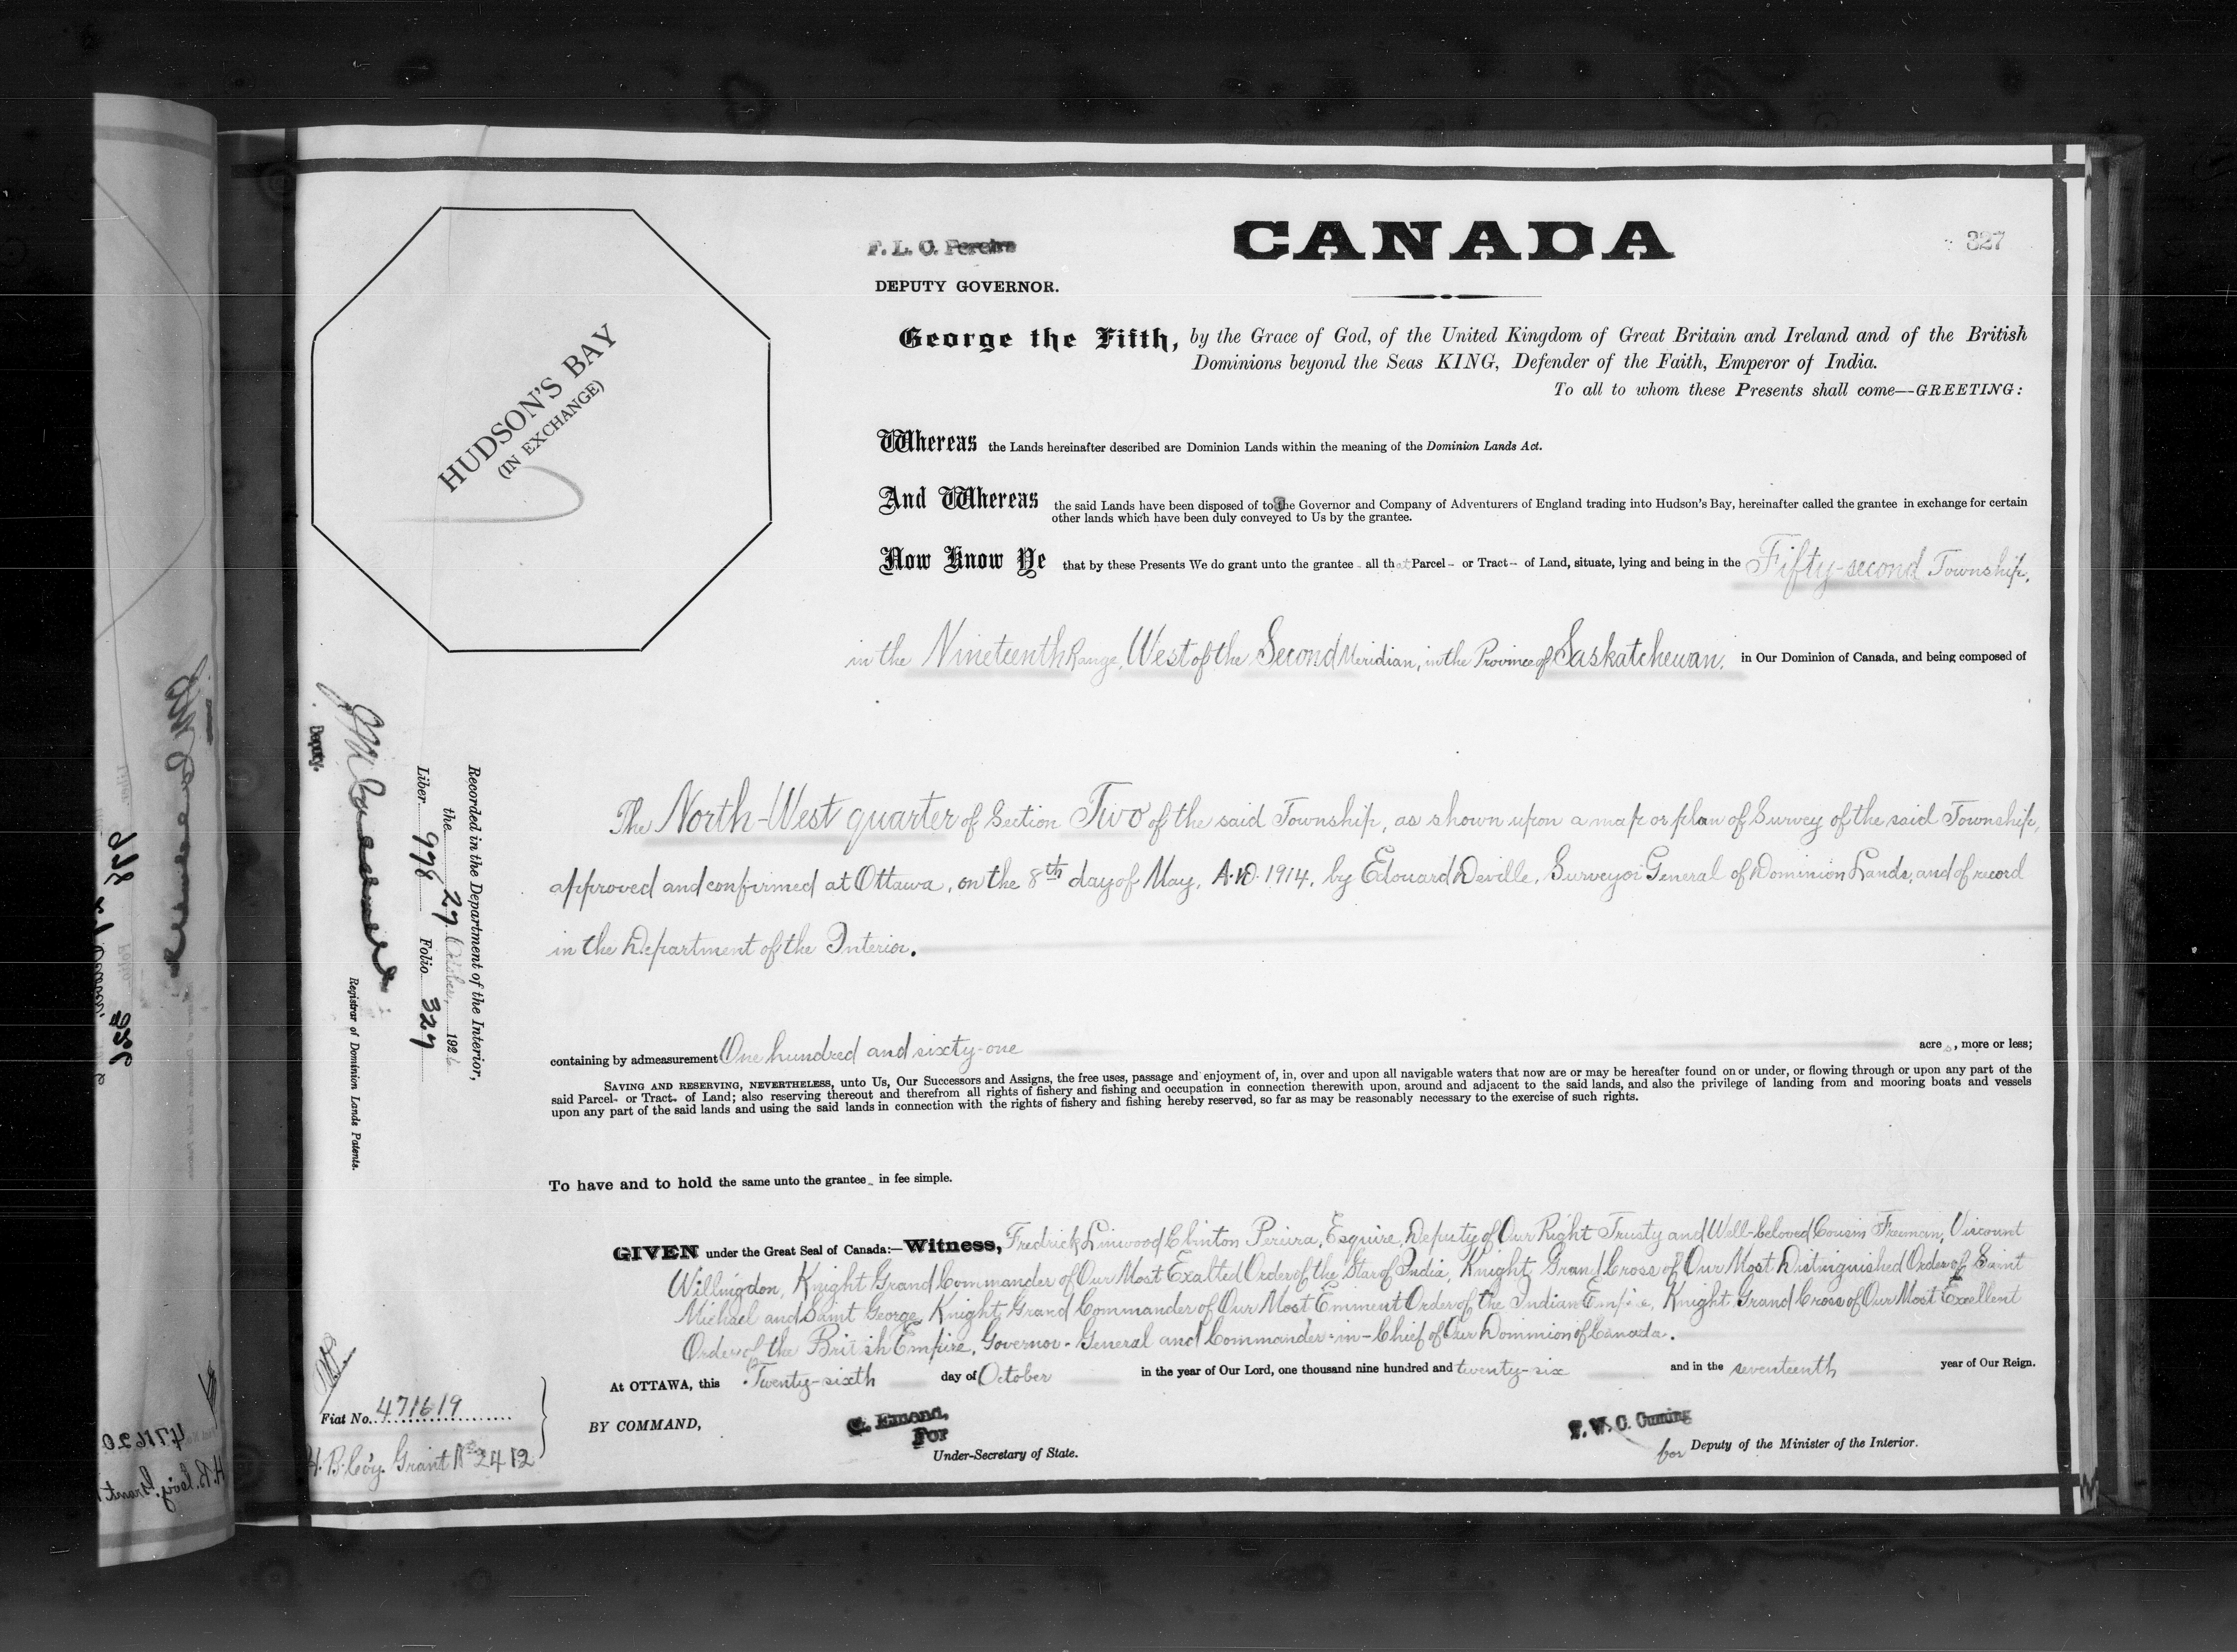 CANADA
327
F. L. C. Pereira
DEPUTY GOVERNOR.
HUDSON'S BAY
(IN EXCHANGE)
George the Fifth, by the Grace of God, of the United Kingdom of Great Britain and Ireland and of the British
Dominions beyond the Seas KING, Defender of the Faith, Emperor of India.
To all to whom these Presents shall come—GREETING:
Whereas the Lands hereinafter described are Dominion Lands within the meaning of the Dominion Lands Act.
And Whereas the said Lands have been disposed of to the Governor and Company of Adventurers of England trading into Hudson's Bay, hereinafter called the grantee in exchange for certain
other lands which have been duly conveyed to Us by the grantee.
Now Know Ye that by these Presents We do grant unto the grantee - all that Parcel - or Tract - of Land, situate, lying and being in the Fifty-second Township,
in the Nineteenth Range, West of the Second Meridian, in the Province of Saskatchewan, in Our Dominion of Canada, and being composed of
The North-West quarter of Section Two of the said Township, as shown upon a map or plan of Survey of the said Township,
approved and confirmed at Ottawa, on the 8th day of May, A.D. 1914, by Edouard Deville, Surveyor General of Dominion Lands, and of record
in the Department of the Interior.
containing by admeasurement One hundred and sixty-one acres, more or less;
SAVING AND RESERVING, NEVERTHELESS, unto Us, Our Successors and Assigns, the free uses, passage and enjoyment of, in, over and upon all navigable waters that now are or may be hereafter found on or under, or flowing through or upon any part of the
said Parcel- or Tract- of Land; also reserving thereout and therefrom all rights of fishery and fishing and occupation in connection therewith upon, around and adjacent to the said lands, and also the privilege of landing from and mooring boats and vessels
upon any part of the said lands and using the said lands in connection with the rights of fishery and fishing hereby reserved, so far as may be reasonably necessary to the exercise of such rights.
To have and to hold the same unto the grantee - in fee simple.
GIVEN under the Great Seal of Canada:—Witness, Fredrick Linwood Clinton Pereira, Esquire, Deputy of Our Right Trusty and Well-beloved Cousin Freeman, Viscount
Willingdon, Knight Grand Commander of Our Most Exalted Order of the Star of India, Knight Grand Cross of Our Most Distinguished Order of Saint
Michael and Saint George, Knight Grand Commander of Our Most Eminent Order of the Indian Empire, Knight Grand Cross of Our Most Excellent
Order of the British Empire, Governor-General and Commander-in-Chief of Our Dominion of Canada.
At OTTAWA, this Twenty-sixth day of October in the year of Our Lord, one thousand nine hundred and twenty-six and in the seventeenth year of Our Reign.
BY COMMAND,
G. Emond,
For
Under-Secretary of State.
F. W. C. Cuming
for Deputy of the Minister of the Interior.
Recorded in the Department of the Interior,
the 27 October, 1926
Liber 998 Folio 327
Deputy.
Registrar of Dominion Lands Patents.
Fiat No. 471619
H. B. Co'y. Grant No 2412
471620
H. B. Co'y. Grant